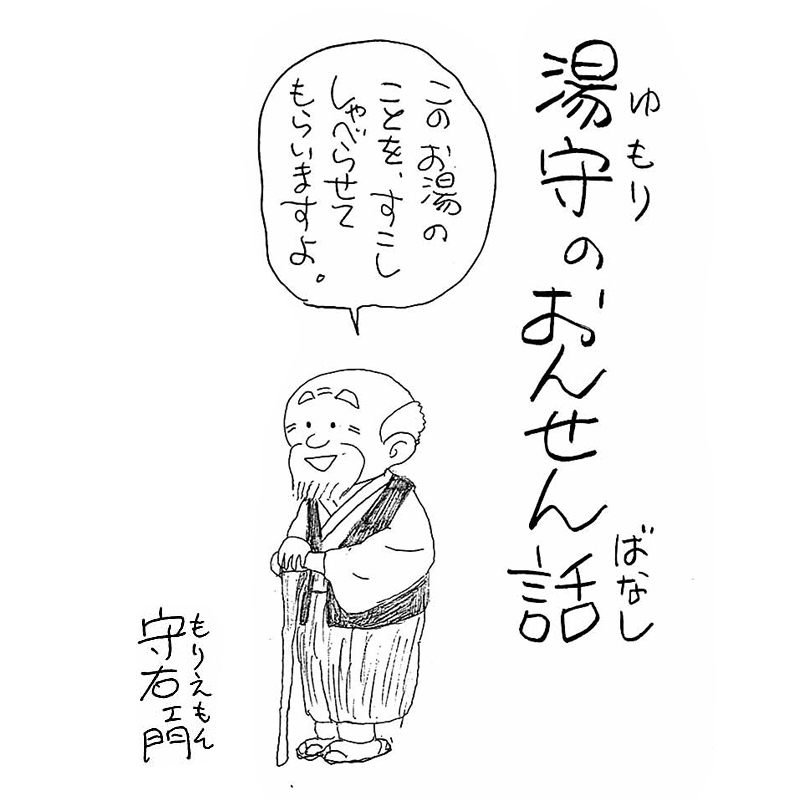 湯守のおんせん話
ゆもり
ばなし
このお湯の
ことを、すこし
しゃべらせて
もらいますよ。
守右エ門
もりえもん